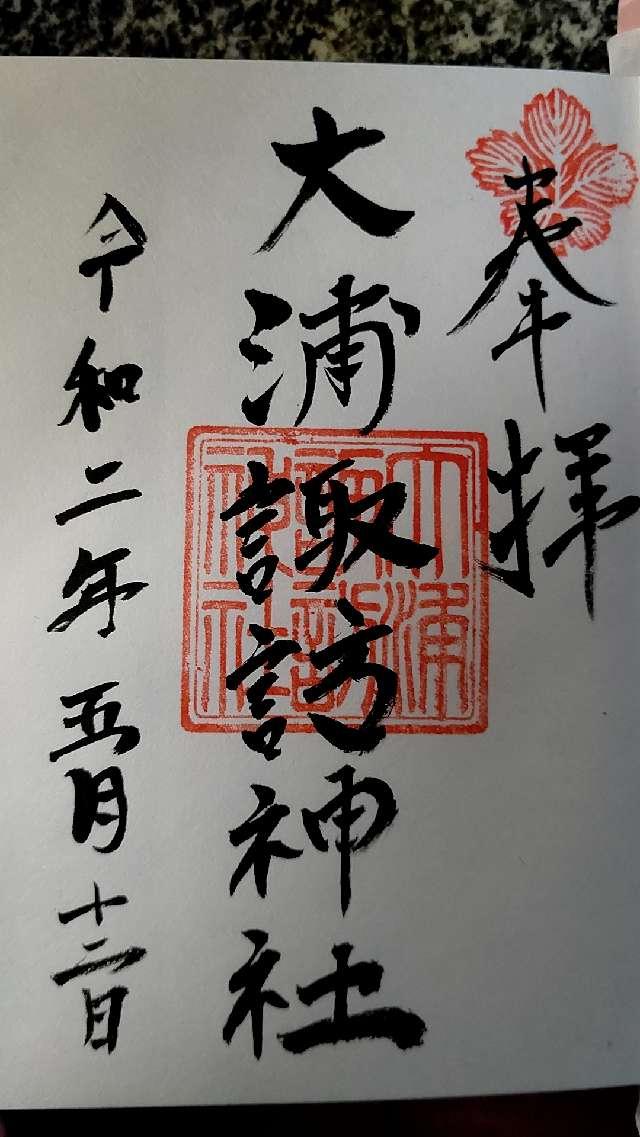 奉拝
大浦諏訪神社
大浦諏訪神社
令和二年五月十二日